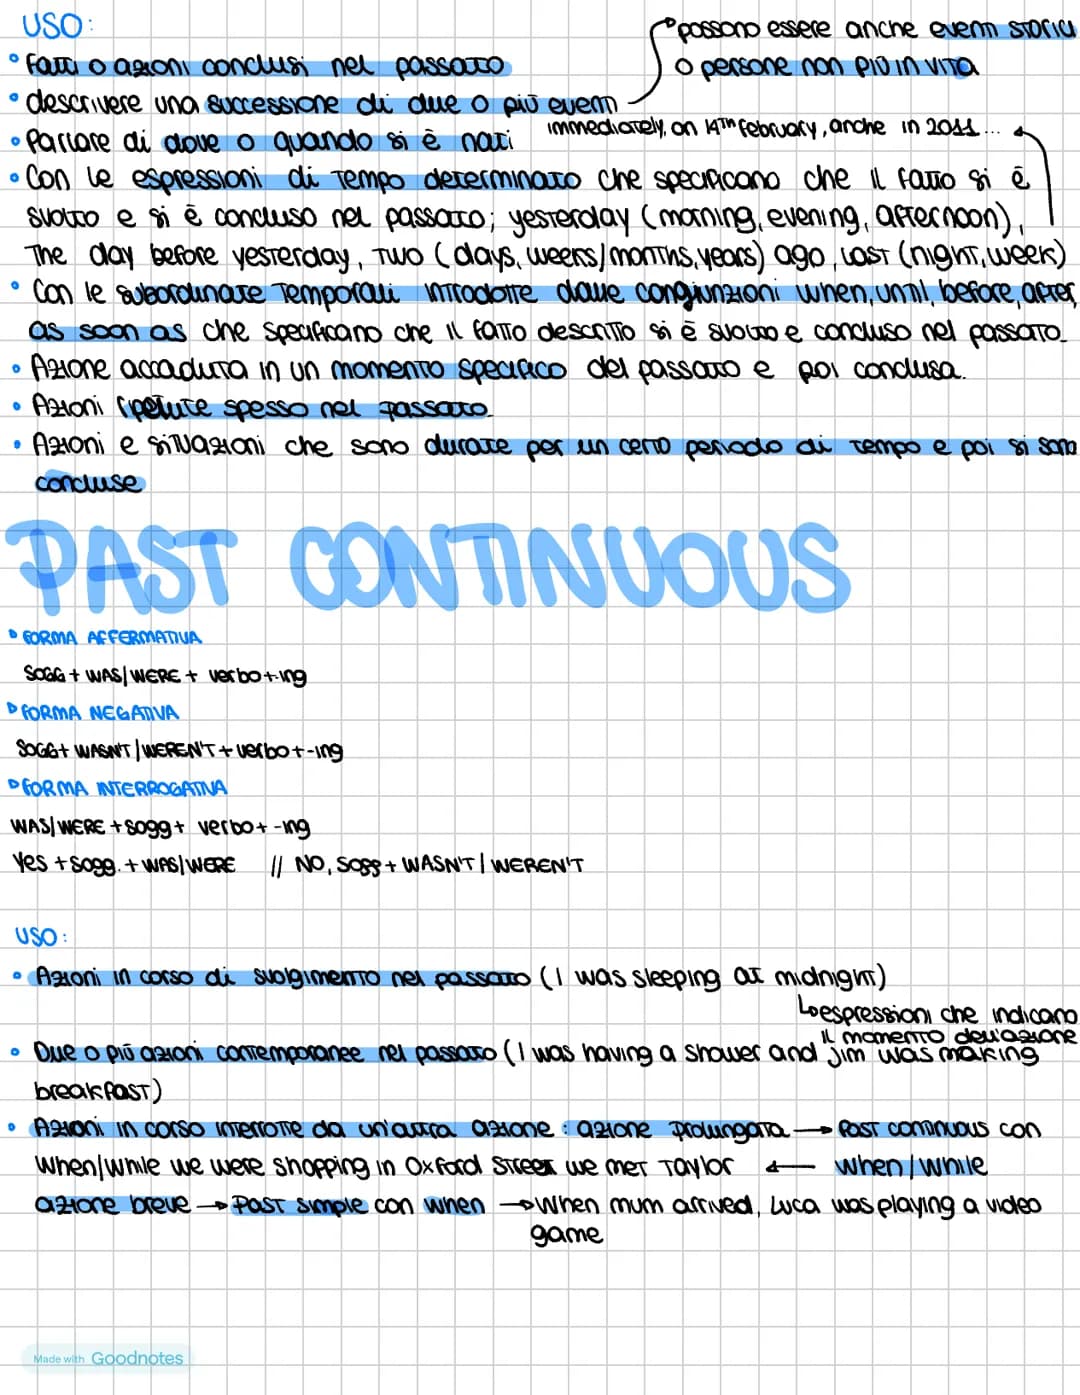 USO:
possono essere anche eventi storici
o persone non più in vita
• Fatti o azioni conclusi nel passato
• descrivere una successione di due o più eventi
• Parlare di dove o quando si è nati
immediately, on 14th february, anche in 2011...
• Con le espressioni di tempo determinato che specificano che il fatto si è
svolto e si è concluso nel passato; yesterday (morning, evening, afternoon),
The day before yesterday, Two (days, weeks/months, years) ago, last (night, week)
• Con le subordinate Temporali introdotte dalle congiunzioni when, until, before, after,
as soon as che specificano che il fatto descritto si è svolto e concluso nel passato.
• Azione accaduta in un momento specifico del passato e poi conclusa.
• Azioni ripetute spesso nel passato.
• Azioni e situazioni che sono durate per un certo periodo di tempo e poi si sono
concluse
PAST CONTINUOUS
FORMA AFFERMATIVA
SOGG + WAS/WERE + verbo+-ing
FORMA NEGATIVA
SOGG+ WASN'T/WEREN'T + verbo+-ing
FORMA INTERROGATIVA
WAS/WERE + sogg + verbo+ -ing
Yes + sogg. + WAS/WERE // NO, sogg + WASN'T/WEREN'T
USO:
• Azioni in corso di svolgimento nel passato (I was sleeping at midnight)
↳ espressioni che indicano
il momento dell'azione
• Due o più azioni contemporanee nel passato (I was having a shower and jim was making
breakfast)
• Azioni in corso interrotte da un'altra azione: azione prolungata → Past continuous con
When/While we were shopping in Oxford Street we met Taylor ← when/while
azione breve → Past simple con when → When mum arrived, Luca was playing a video
game
Made with Goodnotes